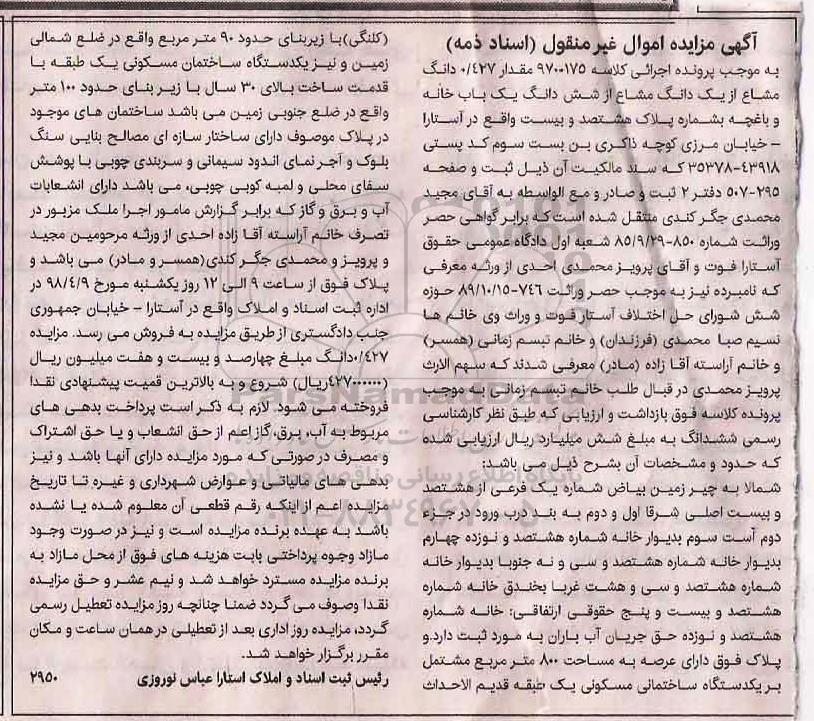 آگهی مزایده اموال غیر منقول (اسناد ذمه)
به موجب پرونده اجرائی کلاسه ۹۷۰۰۱۷۵ مقدار ۰/۴۲۷ دانگ
مشاع از یک دانگ مشاع از شش دانگ یک باب خانه
و باغچه بشماره پلاک هشتصد و بیست واقع در آستارا
– خیابان مرزی کوچه ذاکری بن بست سوم کد پستی
۴۳۹۱۸-۳۵۳۷۸ که سند مالکیت آن ذیل ثبت و صفحه
۲۹۵-۵۰۷ دفتر ۲ ثبت و صادر و مع الواسطه به آقای مجید
محمدی جگر کندی منتقل شده است که برابر گواهی حصر
وراثت شماره ۸۵۰-۸۵/۹/۲۹ شعبه اول دادگاه عمومی حقوق
آستارا فوت و آقای پرویز محمدی احدی از ورثه معرفی
که نامبرده نیز به موجب حصر وراثت ۷۴۶-۸۹/۱۰/۱۵ حوزه
شش شورای حل اختلاف آستار فوت و وراث وی خانم ها
نسیم صبا محمدی (فرزندان) و خانم تبسم زمانی (همسر)
و خانم آراسته آقا زاده (مادر) معرفی شدند که سهم الارث
پرویز محمدی در قبال طلب خانم تبسم زمانی به موجب
پرونده کلاسه فوق بازداشت و ارزیابی که طبق نظر کارشناسی
رسمی ششدانگ به مبلغ شش میلیارد ریال ارزیابی شده
که حدود و مشخصات آن بشرح ذیل می باشد:
شمالا به چیر زمین بیاض شماره یک فرعی از هشتصد
و بیست اصلی شرقا اول و دوم به بند درب ورود در جزء
دوم آست سوم بدیوار خانه شماره هشتصد و نوزده چهارم
بدیوار خانه شماره هشتصد و سی و نه جنوبا بدیوار خانه
شماره هشتصد و سی و هشت غربا بخندق خانه شماره
هشتصد و بیست و پنج حقوقی ارتفاقی: خانه شماره
هشتصد و نوزده حق جریان آب باران به مورد ثبت دارد.و
پلاک فوق دارای عرصه به مساحت ۸۰۰ متر مربع مشتمل
بر یکدستگاه ساختمانی مسکونی یک طبقه قدیم الاحداث
(کلنگی)با زیربنای حدود ۹۰ متر مربع واقع در ضلع شمالی
زمین و نیز یکدستگاه ساختمان مسکونی یک طبقه با
قدمت ساخت بالای ۳۰ سال با زیر بنای حدود ۱۰۰ متر
واقع در ضلع جنوبی زمین می باشد ساختمان های موجود
در پلاک موصوف دارای ساختار سازه ای مصالح بنایی سنگ
بلوک و آجر نمای اندود سیمانی و سربندی چوبی با پوشش
سفای محلی و لمبه کوبی چوبی، می باشد دارای انشعابات
آب و برق و گاز که برابر گزارش مامور اجرا ملک مزبور در
تصرف خانم آراسته آقا زاده احدی از ورثه مرحومین مجید
و پرویز و محمدی جگر کندی(همسر و مادر) می باشد و
پلاک فوق از ساعت ۹ الی ۱۲ روز یکشنبه مورخ ۹۸/۴/۹ در
اداره ثبت اسناد و املاک واقع در آستارا – خیابان جمهوری
جنب دادگستری از طریق مزایده به فروش می رسد. مزایده
۰/۴۲۷دانگ مبلغ چهارصد و بیست و هفت میلیون ریال
(۴۲۷۰۰۰۰۰۰ریال) شروع و به بالاترین قمیت پیشنهادی نقدا
فروخته می شود. لازم به ذکر است پرداخت بدهی های
مربوط به آب، برق، گاز اعم از حق انشعاب و یا حق اشتراک
و مصرف در صورتی که مورد مزایده دارای آنها باشد و نیز
بدهی های مالیاتی و عوارض شهرداری و غیره تا تاریخ
مزایده اعم از اینکه رقم قطعی آن معلوم شده یا نشده
باشد به عهده برنده مزایده است و نیز در صورت وجود
مازاد وجوه پرداختی بابت هزینه های فوق از محل مازاد به
برنده مزایده مسترد خواهد شد و نیم عشر و حق مزایده
نقدا وصوف می گردد ضمنا چنانچه روز مزایده تعطیل رسمی
گردد، مزایده روز اداری بعد از تعطیلی در همان ساعت و مکان
مقرر برگزار خواهد شد.
رئیس ثبت اسناد و املاک استارا عباس نوروزی ۲۹۵۰
ParsNamadData